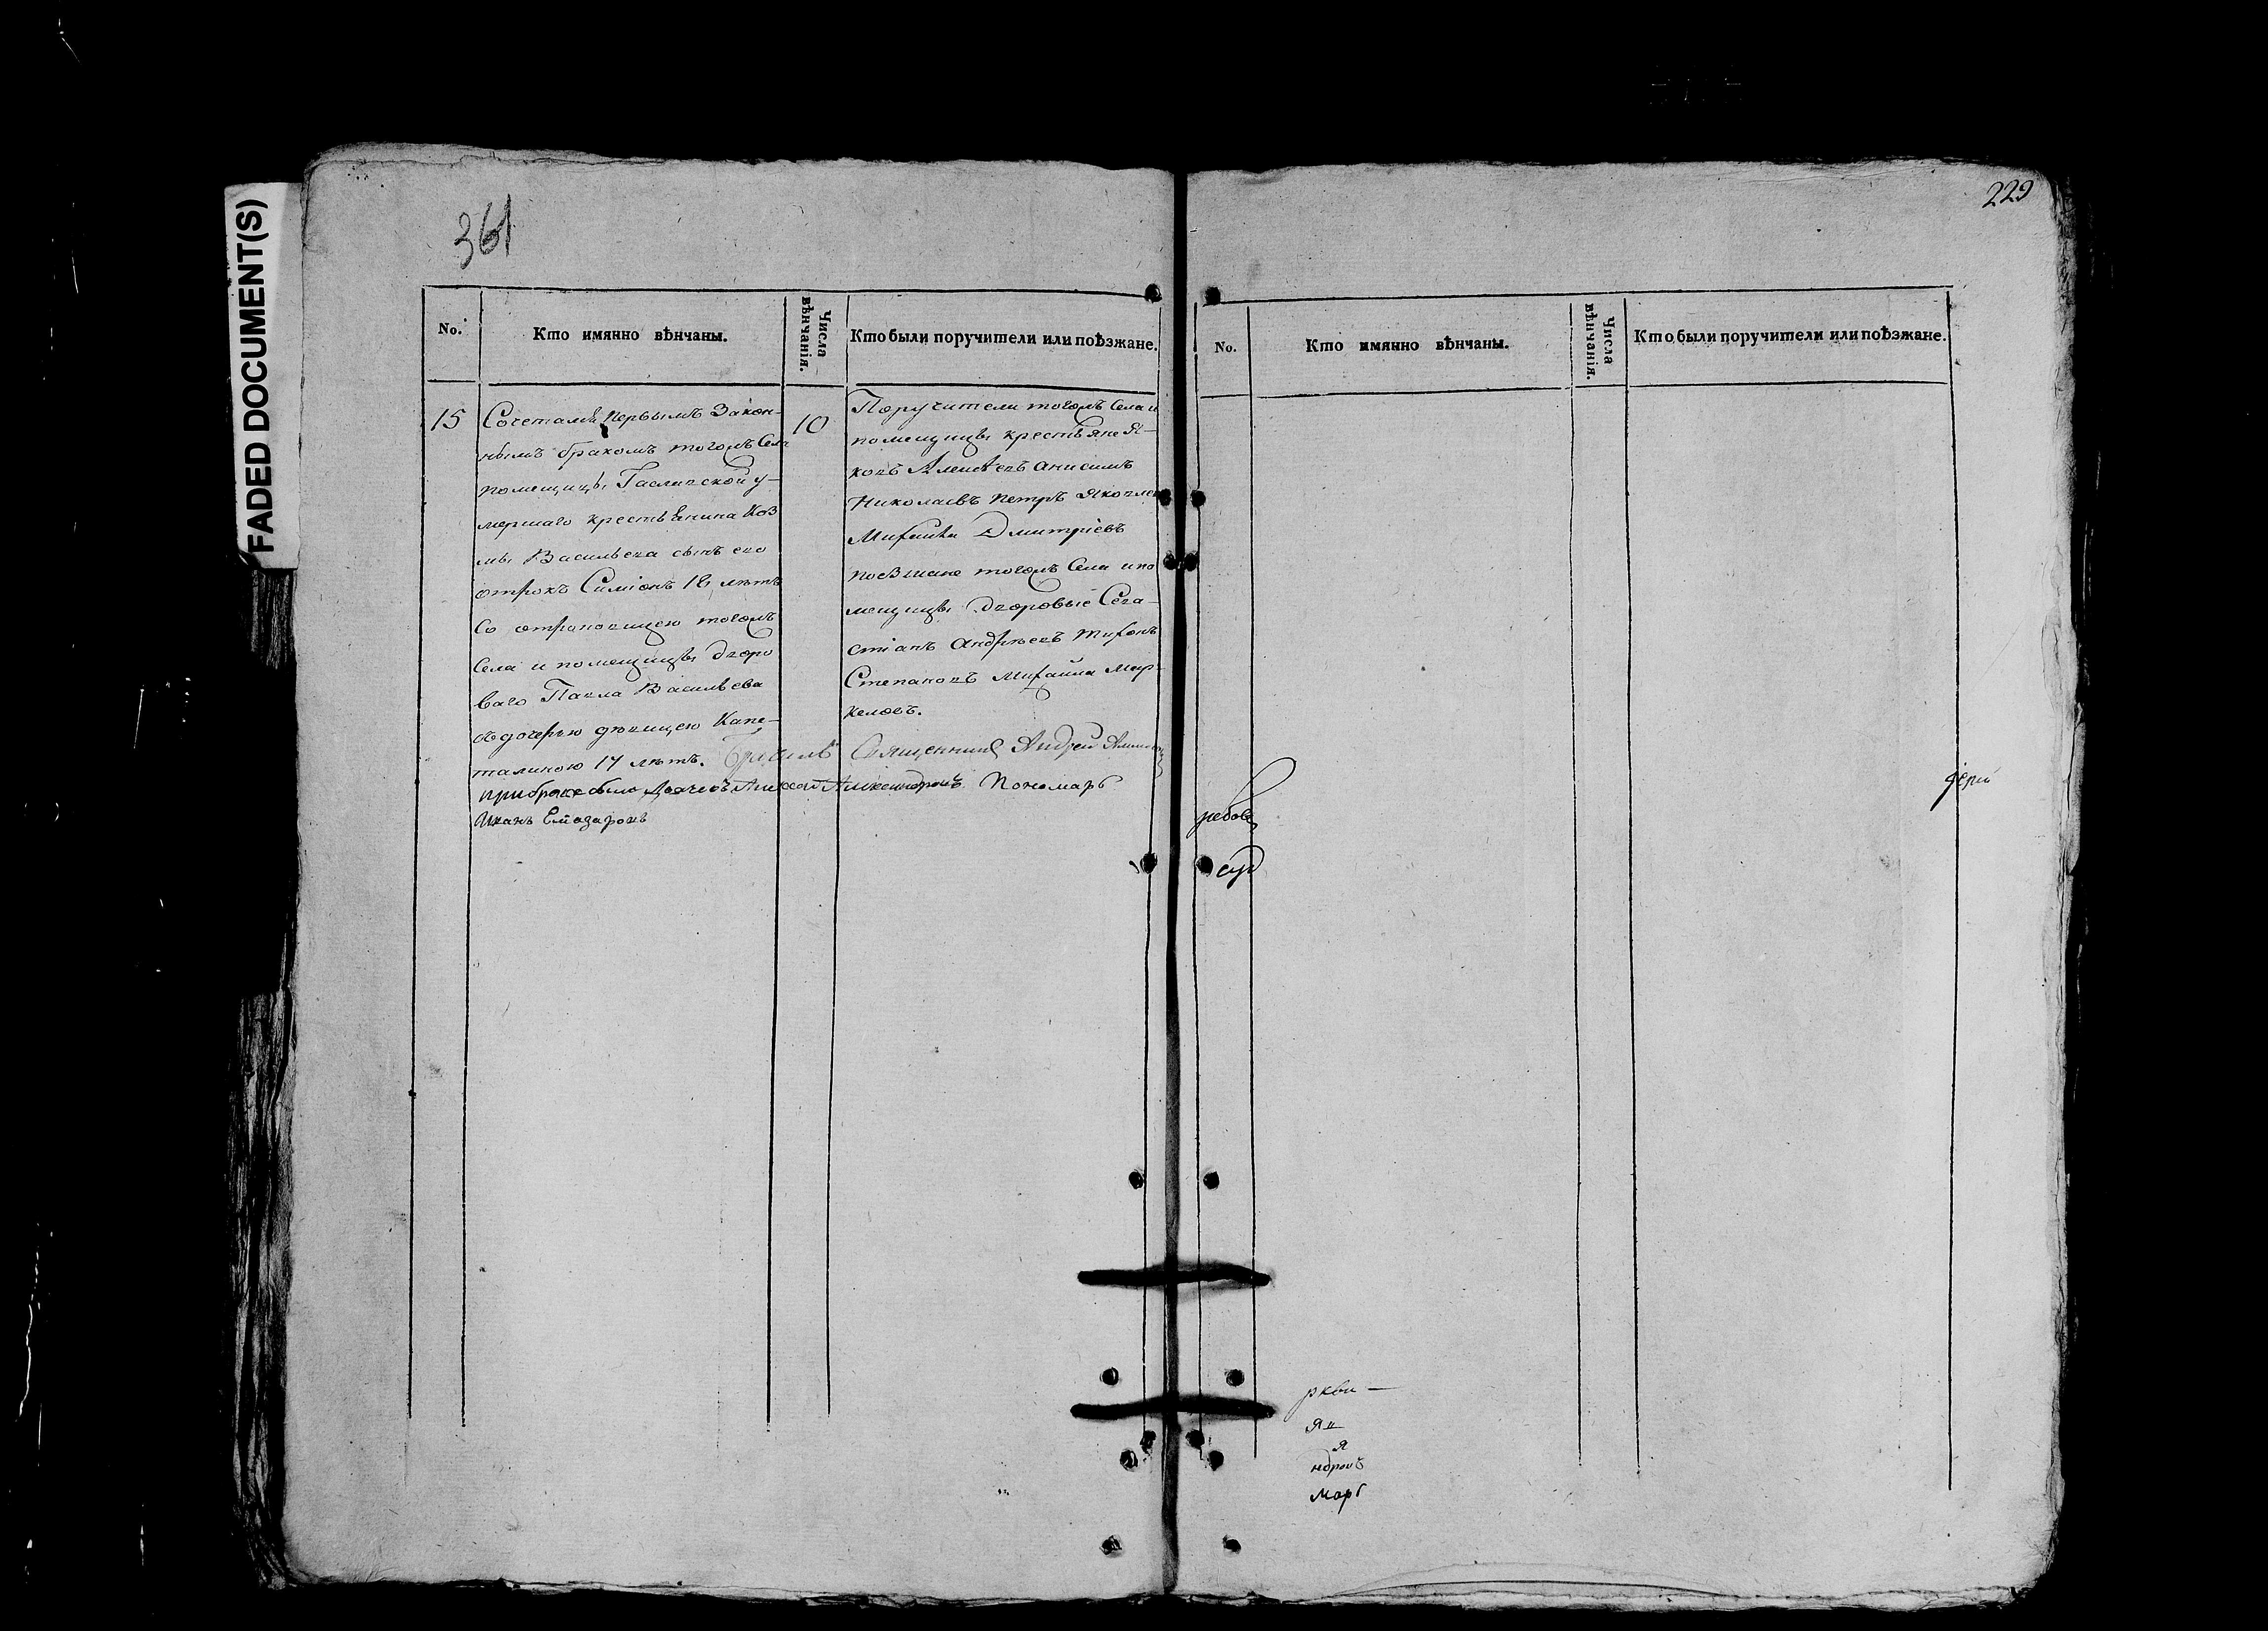 FADED DOCUMENT(S)
361
No.
Кто имянно вѣнчаны.
Числа вѣнчанія.
Кто были поручители или поѣзжане.
15
Сочетанъ первымъ закон-
нымъ бракомъ тогожъ Села
помещицы у-
мершаго крестьянина Коз
мы Васильева сынъ его
отрокъ Симіонъ 18 лѣтъ
Со отроковицею тогожъ
Села и помещицы дворо
ваго Павла Васильева
дочерью девицею Капе-
талиною 17 лѣтъ.
10
Поручители тогожъ Села и
помещицы крестьяне Я-
ковъ Алексѣевъ Анисимъ
Николаевъ Петръ Яковлев
Михайла Дмитріевъ
поезжане тогожъ Села и по
мещицы дворовые Сева-
стіанъ Андреевъ Тихонъ
Степановъ Михайла Мар-
келовъ.
Священникъ Андрей
при браке были Дьячекъ Алексей Александровъ Пономарь
Иванъ Елиазаровъ
229
No.
Кто имянно вѣнчаны.
Числа вѣнчанія.
Кто были поручители или поѣзжане.
ркви —
я
ндровъ
марь